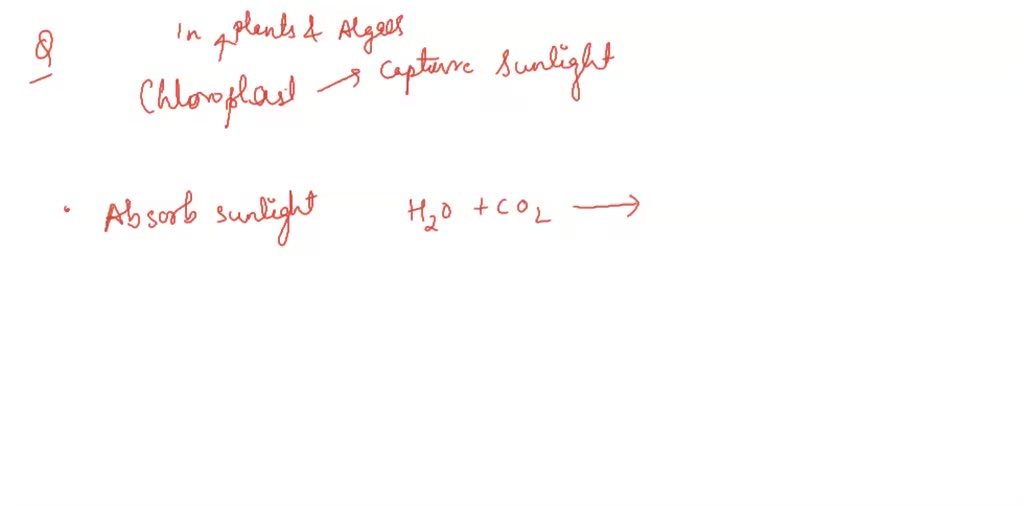 Q
In plants & Algaes
Chloroplast → Capture sunlight
• Absorb sunlight H₂O + CO₂ →